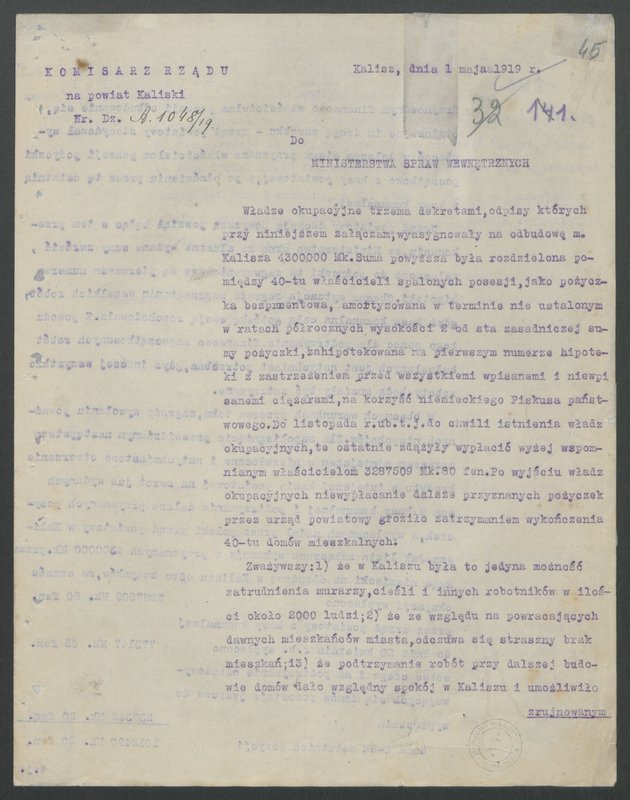 45
KOMISARZ RZĄDU
Kalisz, dnia 1 majaa1919 r.
na powiat Kaliski
Nr. Dz. A. 1048/19
32 141.
Do
MINISTERSTWA SPRAW WEWNĘTRZNYCH
Władze okupacyjne trzema dekretami,odpisy których
przy niniejszem załączam,wyasygnowały na odbudowę m.
Kalisza 4300000 Mk.Suma powyższa była rozdzielona po-
między 40-tu właścicieli spalonych posesji,jako pożycz-
ka bezprocentowa, amortyzowana w terminie nie ustalonym
w ratach półrocznych wysokości 2 od sta zasadniczej su-
my pożyczki,zahipotekowana na pierwszym numerze hipote-
ki z zastrzeżeniem przed wszystkiemi wpisanemi i niewpi
sanemi ciężarami,na korzyść niemieckiego Fiskusa państ-
wowego.Do listopada r.ub.t.j.do chwili istnienia władz
okupacyjnych,te ostatnie zdążyły wypłacić wyżej wspom-
nianym właścicielom 3287509 Mk.80 fen.Po wyjściu władz
okupacyjnych niewypłacanie dalsze przyznanych pożyczek
przez urząd powiatowy groziło zatrzymaniem wykończenia
40-tu domów mieszkalnych.
Zważywszy:1) że w Kaliszu była to jedyna możność
zatrudnienia murarzy,cieśli i innych robotników w iloś-
ci około 2000 ludzi;2) że ze względu na powracających
dawnych mieszkańców miasta,odczuwa się straszny brak
mieszkań;i3) że podtrzymanie robót przy dalszej budo-
wie domów dało względny spokój w Kaliszu i umożliwiło
zrujnowanym